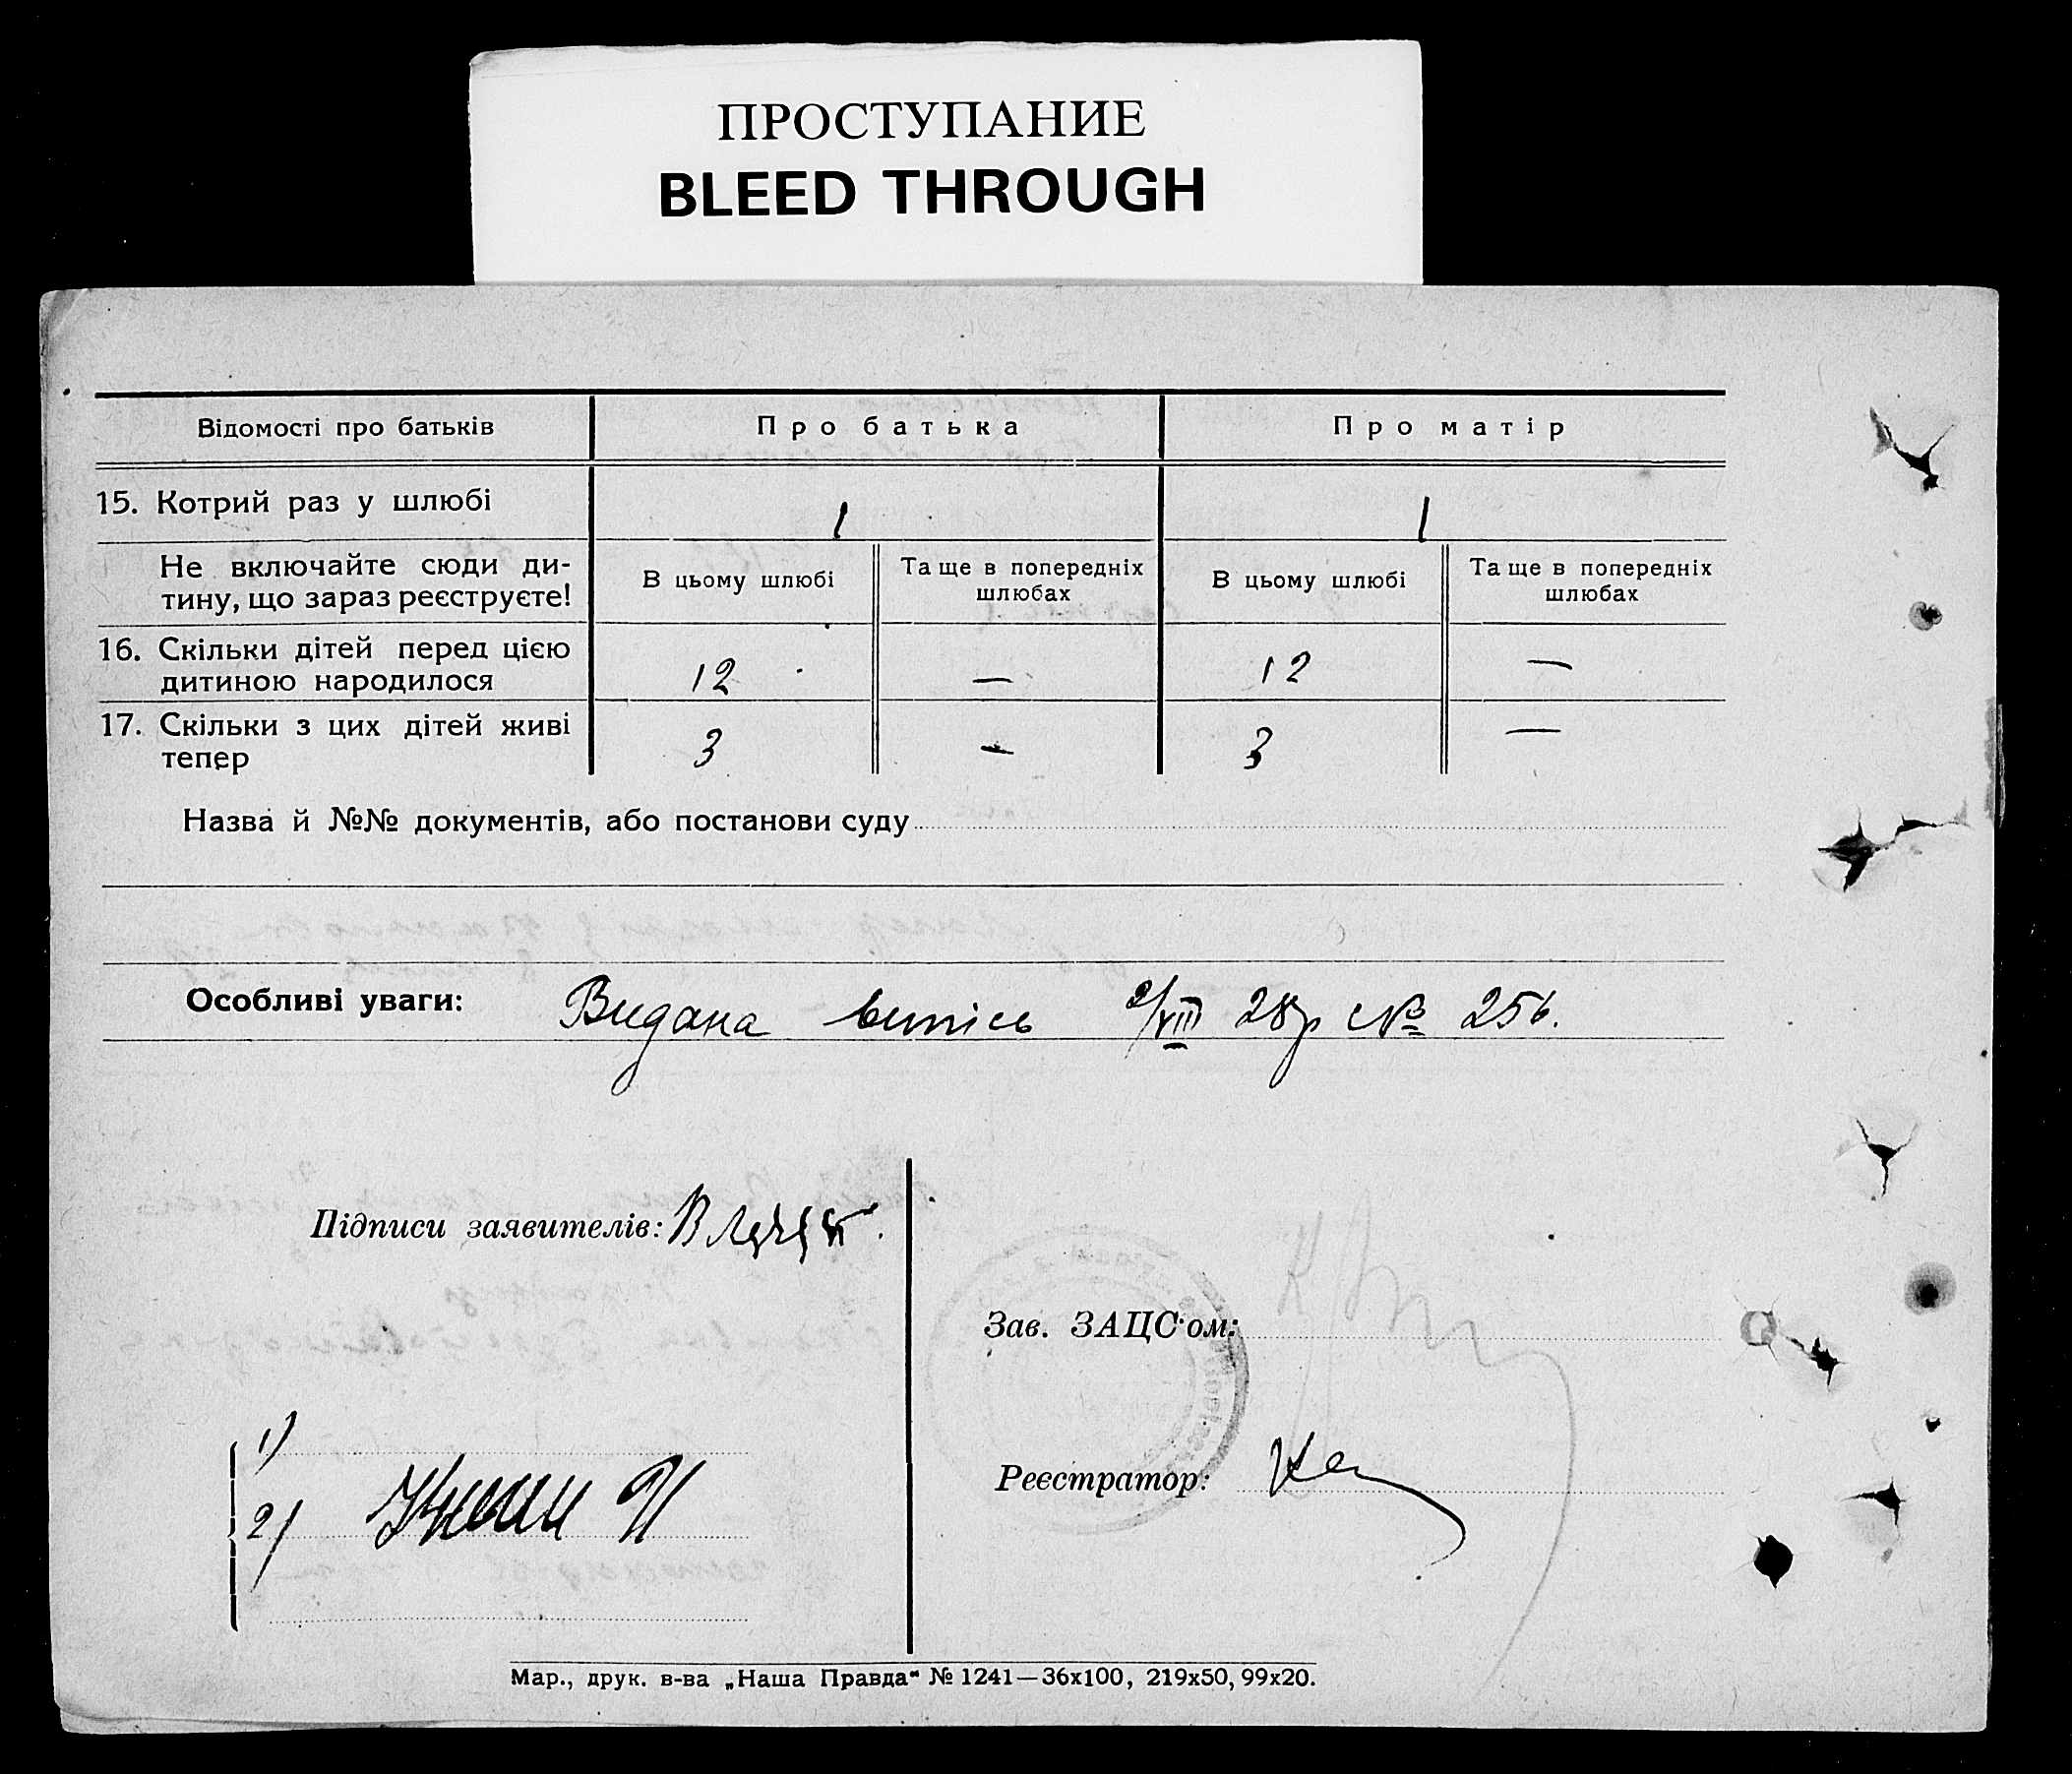 ПРОСТУПАНИЕ
BLEED THROUGH
Відомості про батьків
Про батька
Про матір
15. Котрий раз у шлюбі
1
1
Не включайте сюди ди-
тину, що зараз реєструєте!
В цьому шлюбі
Та ще в попередніх
шлюбах
В цьому шлюбі
Та ще в попередніх
шлюбах
16. Скільки дітей перед цією
дитиною народилося
12
—
12
—
17. Скільки з цих дітей живі
тепер
3
—
3
—
Назва й №№ документів, або постанови суду
Особливі уваги: Видана випись 2/VIII 28р № 256.
Підписи заявителів:
Зав. ЗАЦС'ом:
1)
Реєстратор:
2)
Мар., друк. в-ва „Наша Правда“ № 1241—36x100, 219x50, 99x20.